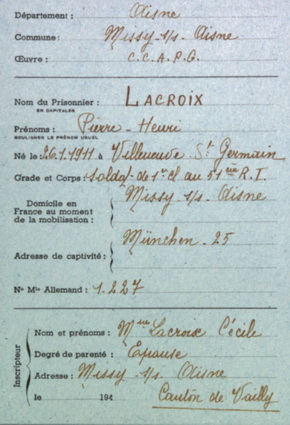 Département : Aisne
Commune : Missy-s/s-Aisne
Œuvre : C.C.A.P.G.
Nom du Prisonnier : LACROIX
EN CAPITALES
Prénoms : Pierre-Henri
SOULIGNER LE PRÉNOM USUEL
Né le 26.1.1911 à Villeneuve St Germain
Grade et Corps : soldat de 1re cl au 51ème R.I.
Domicile en Missy-s/s-Aisne
France au moment
de la mobilisation :
München-25
Adresse de captivité :
No Mle Allemand : 1.227
Inscripteur
Nom et prénoms : Mme Lacroix Cécile
Degré de parenté : Epouse
Adresse : Missy s/s Aisne
le 194 Canton de Vailly